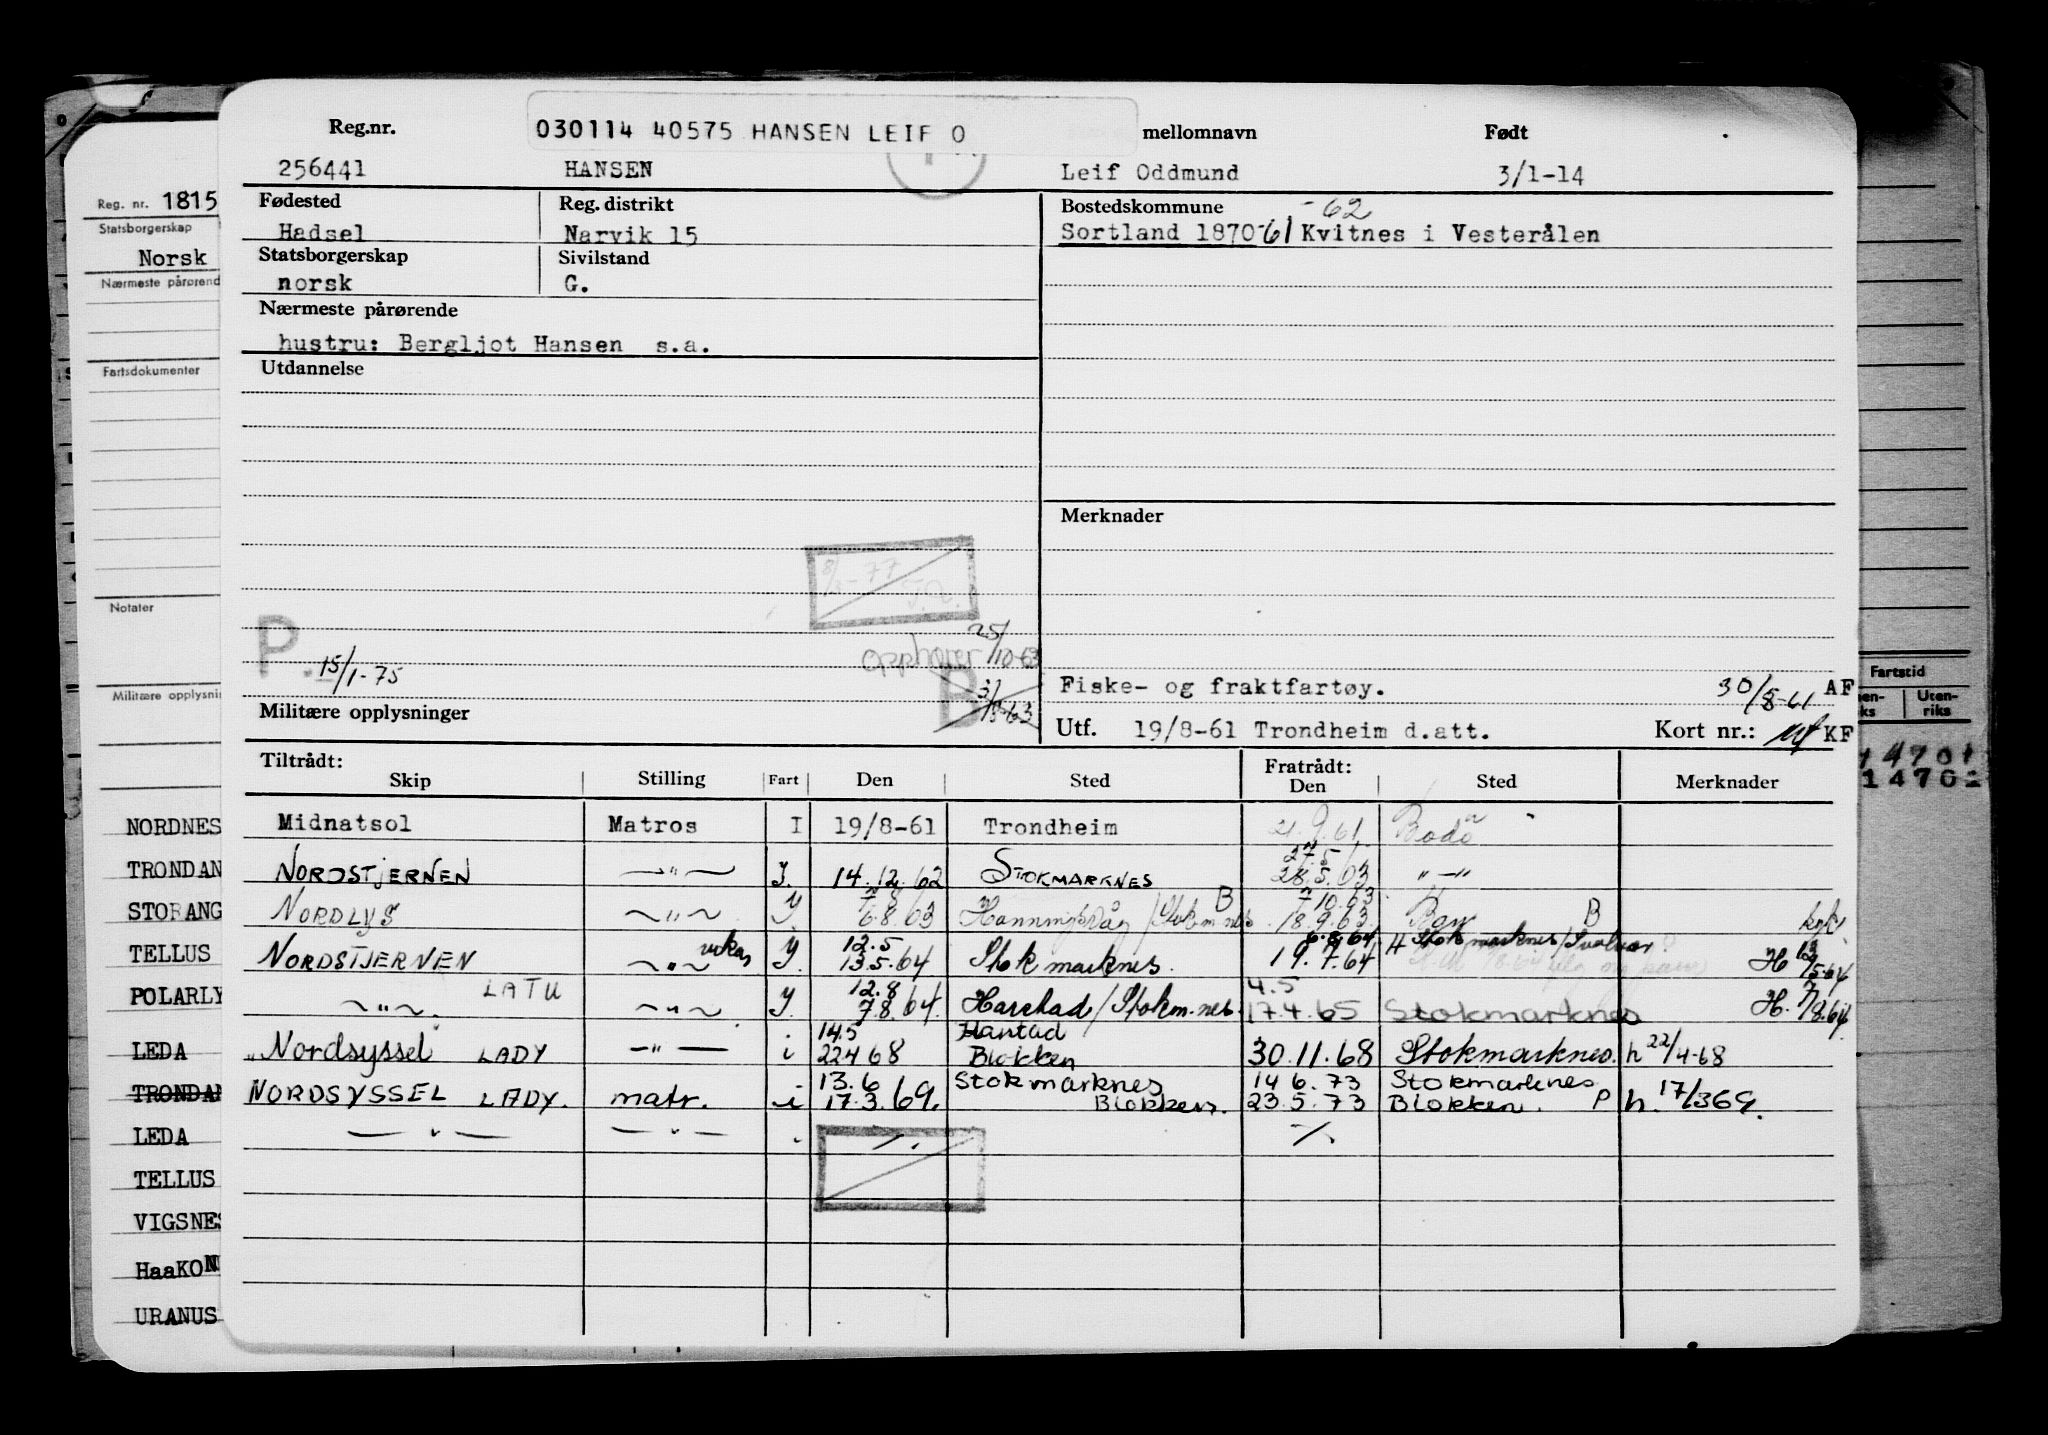 Reg.nr. 030114 40575 HANSEN LEIF O mellomnavn Født
256441 HANSEN Leif Oddmund 3/1-14
Fødested Reg. distrikt Bostedskommune -62
Hadsel Narvik 15 Sortland 1870-61 Kvitnes i Vesterålen
Statsborgerskap Sivilstand
norsk G.
Nærmeste pårørende
hustru: Bergljot Hansen s.a.
Utdannelse
Merknader
8/3-77
25/10-63
opphører
P. 15/1-75
B 3/
Fiske- og fraktfartøy. 30/8-61 AF
Militære opplysninger
Utf. 19/8-61 Trondheim d.att. Kort nr.: KF
Tiltrådt: Fratrådt:
Skip Stilling Fart Den Sted Den Sted Merknader
Midnatsol Matros I 19/8-61 Trondheim 21.9.61 Bodø
27.5
NORDSTJERNEN —"— I. 14.12.62 STOKMARKNES 28.5.63 "—"
7.8 B 7.10.63 H
NORDLYS —"— I 6.8.63 Honningsvåg / Stokm.nes 18.9.63 B
12.5 6.8.64 H Stokmarknes/Svolvær
NORDSTJERNEN —"— vikar I 13.5.64 Stokmarknes. 19.7.64 H 13/5-64
12.8 4.5
—"— LATU —"— I 7.8.64. Harstad / Stokm.nes. 17.4.65 Stokmarknes H. 7/8.64
14.5 Harstad
" Nordsyssel LADY —"— i 22.4 68 Blokken 30.11.68 Stokmarknes. h 22/4-68
13.6 Stokmarknes 14 6.73 Stokmarknes
NORDSYSSEL LADY. matr. i 17.3.69. Blokken. 23.5.73 Blokken. P h. 17/369.
—"— —"— i ./. ./.
Reg. nr. 1815
Statsborgerskap
Norsk
Nærmeste pårørend
Fartsdokumenter
Notater
Militære opplysnin
NORDNES
TRONDAN
STORANG
TELLUS
POLARLY
LEDA
TRONDAN
LEDA
TELLUS
VIGSNES
HaaKON
URANUS
Fartstid
en-ks Uten-riks
4701
1470